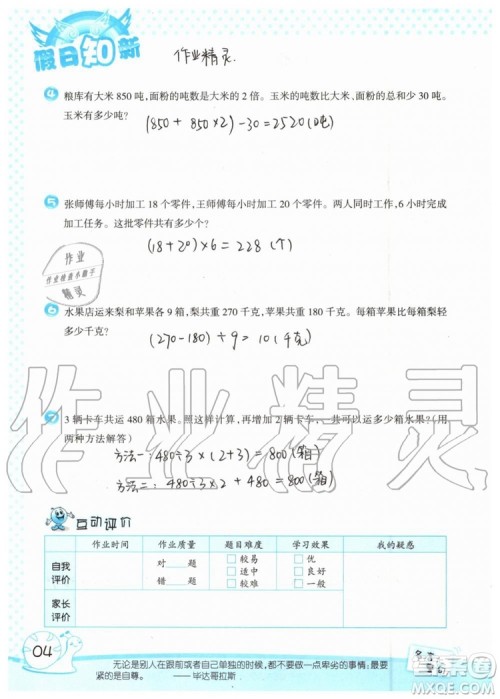 假日知新
作业精灵.
4 粮库有大米 850 吨,面粉的吨数是大米的 2 倍。玉米的吨数比大米、面粉的总和少 30 吨。
玉米有多少吨?
(850 + 850×2) -30 = 2520(吨)
5 张师傅每小时加工 18 个零件,王师傅每小时加工 20 个零件。两人同时工作,6 小时完成
加工任务。这批零件共有多少个?
(18+20)×6 = 228 (个)
作业
作业检查小助手
精灵
6 水果店运来梨和苹果各 9 箱,梨共重 270 千克,苹果共重 180 千克。每箱苹果比每箱梨轻
多少千克?
(270-180) ÷ 9 = 10 (千克)
作业精灵
7 3 辆卡车共运 480 箱水果。照这样计算,再增加 2 辆卡车,一共可以运多少箱水果?(用
两种方法解答)
方法一: 480÷3 × (2+3) = 800 (箱)
方法二: 480÷3×2 + 480 = 800 (箱)
互动评价
作业时间 作业质量 题目难度 学习效果 我的疑惑
自我
评价
对 题
错 题
□较易
□适中
□较难
□优
□良好
□一般
家长
评价
04
无论是别人在跟前或者自己单独的时候,都不要做一点卑劣的事情:最要
紧的是自尊。 ——毕达哥拉斯
答案圈
MXQE.COM